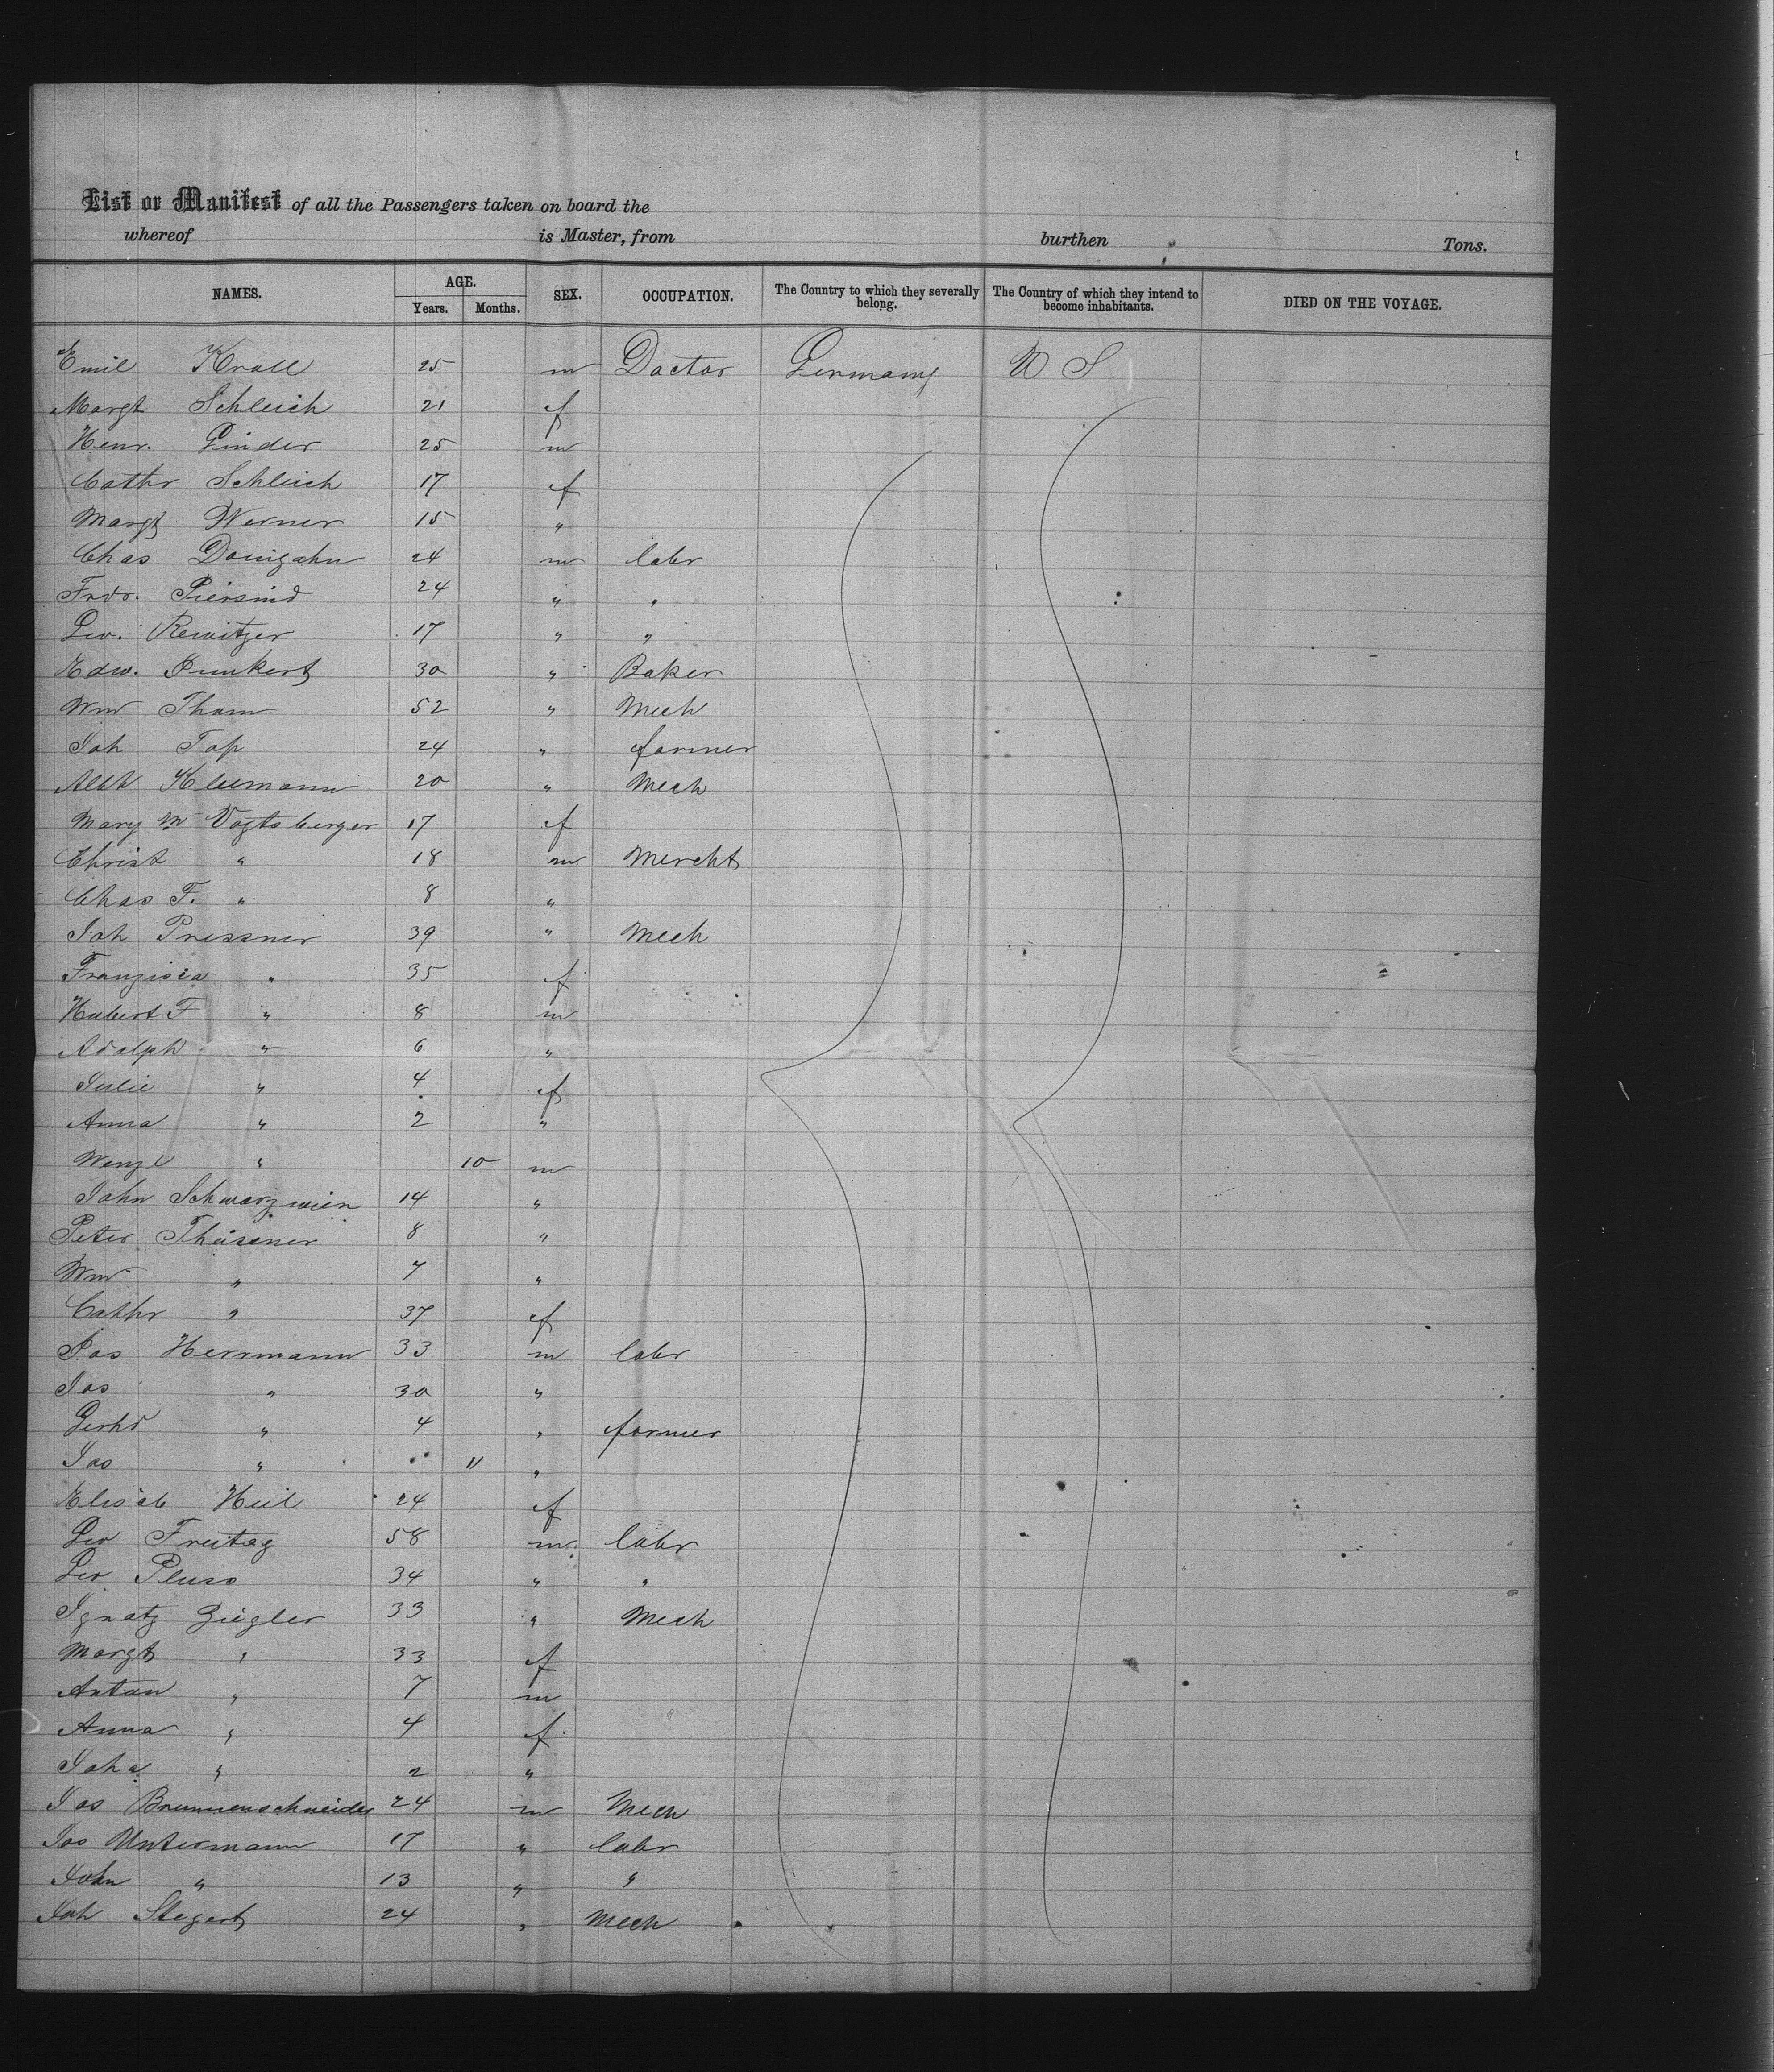 List or Manifest of all the Passengers taken on board the
whereof is Master, from burthen Tons.
NAMES. AGE. Years. Months. SEX. OCCUPATION. The Country to which they severally belong. The Country of which they intend to become inhabitants. DIED ON THE VOYAGE.
Emil Krall 25 m Doctor Germany U S
Margt Schleich 21 f
Henr. Pinder 25 m
Cathr Schleich 17 f
Margt Werner 15 "
Chas 24 m labr
Fredr. 24 " "
17 " "
Edw. 30 " Baker
Wm Tham 52 " Mech
Joh Top 24 " farmer
Albt Kleemann 20 " Mech
Mary M Vogtsberger 17 f
Christ " 18 m Mercht
Chas F. " 8 "
Joh Pressner 39 " Mech
Franzisca " 35 f
Hubert F " 8 m
Adolph " 6 "
Julie " 4 f
Anna " 2 "
Wenzl " 10 m
John Schwarzwein 14 "
Peter Theissner 8 "
Wm " 7 "
Cathr " 37 f
Jos Herrmann 33 m labr
Jos " 30 "
Gerhd " 4 " farmer
Jos " 11 "
Elisab Heil 24 f
Freitag 58 m labr
34 " "
Ignatz Ziegler 33 " Mech
Margt " 33 f
Anton " 7 m
Anna " 4 f
Joha " 2 "
Jos Brunnenschneider 24 m Mech
Jos Untermann 17 " labr
John " 13 " "
Joh Stegert 24 " Mech